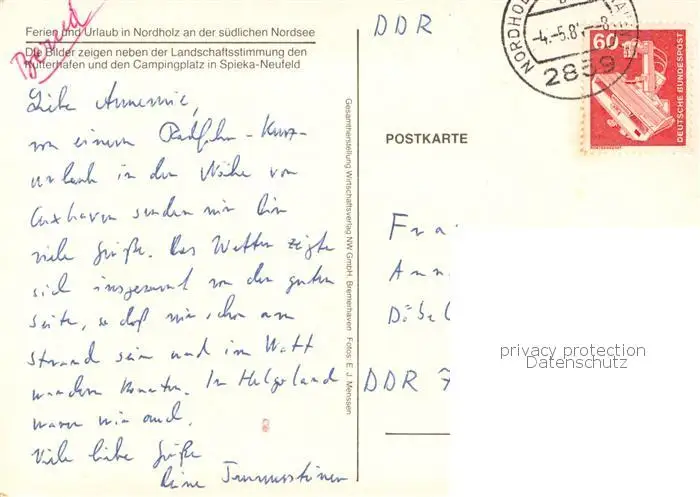 Ferien und Urlaub in Nordholz an der südlichen Nordsee
Die Bilder zeigen neben der Landschaftsstimmung den
Kutterhafen und den Campingplatz in Spieka-Neufeld
Liebe Annemie,
von einem Radfahr-Kurz-
urlaub in der Nähe von
Cuxhaven senden wir Dir
viele Grüße. Das Wetter zeigte
sich insgesamt von der guten
Seite, so daß wir schon am
Strand sein und im Watt
wandern konnten. In Helgoland
waren wir auch.
Viele liebe Grüße
Deine
Gesamtherstellung Wirtschaftsverlag NW GmbH, Bremerhaven Fotos: E. J. Menssen
DDR
POSTKARTE
NORDHOL
-4.-5.8
2859
60
DEUTSCHE BUNDESPOST
Fra
Ann
Döbel
DDR 7
privacy protection
Datenschutz